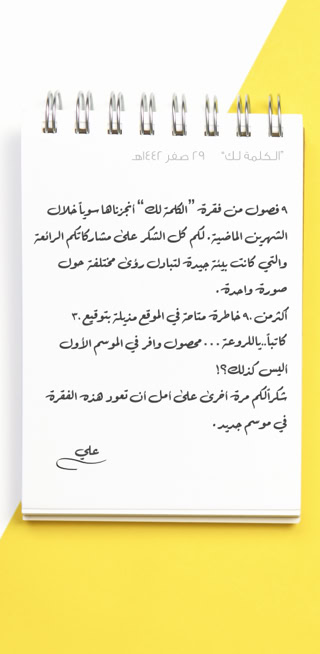 "الكلمة لك" ٢٩ صفر ١٤٤٢هـ
٩ فصول من فقرة "الكلمة لك" أنجزناها سوياً خلال
الشهرين الماضية. لكم كل الشكر على مشاركاتكم الرائعة
والتي كانت بيئة جيدة لتبادل رؤى مختلفة حول
صورة واحدة.
أكثر من ٩٠ خاطرة متاحة في الموقع مذيلة بتوقيع ٣٠
كاتباً..ياللروعة... محصول وافر في الموسم الأول
أليس كذلك؟!
شكراً لكم مرة أخرى على أمل أن تعود هذه الفقرة
في موسم جديد.
علي